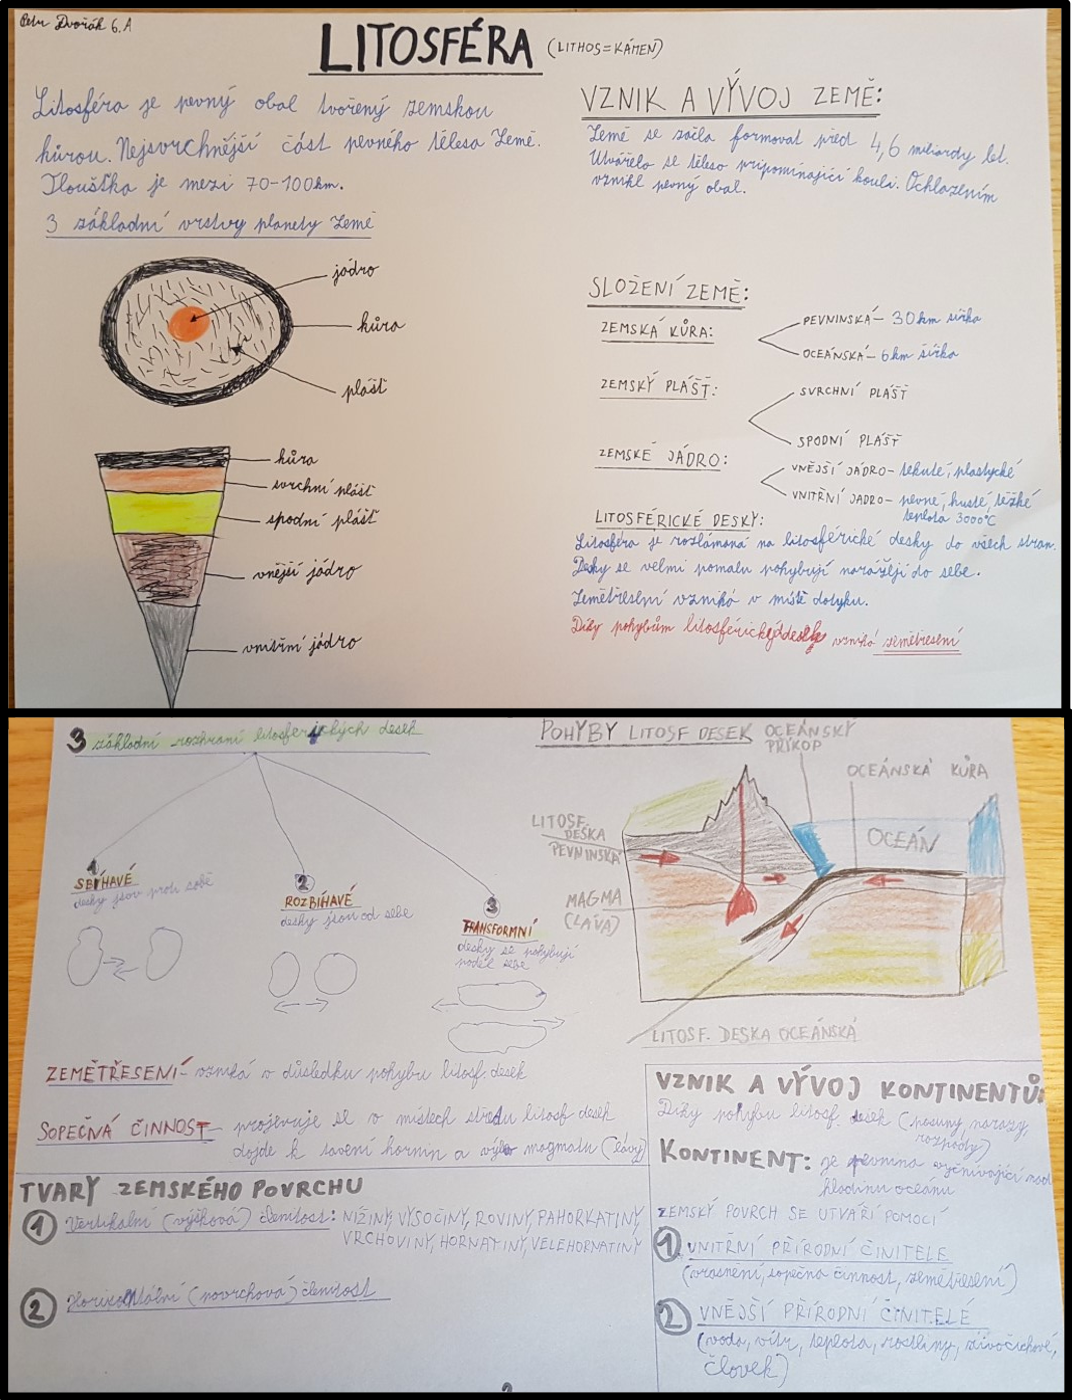 Petr Dvořák 6.A
LITOSFÉRA (LITHOS=KÁMEN)
Litosféra je pevný obal tvořený zemskou
kůrou. Nejsvrchnější část pevného tělesa Země.
Tloušťka je mezi 70-100km.
3 základní vrstvy planety Země
jádro
kůra
plášť
kůra
svrchní plášť
spodní plášť
vnější jádro
vnitřní jádro
VZNIK A VÝVOJ ZEMĚ:
Země se začla formovat před 4,6 miliardy let.
Utvářelo se těleso připomínající kouli. Ochlazením
vznikl pevný obal.
SLOŽENÍ ZEMĚ:
ZEMSKÁ KŮRA:
PEVNINSKÁ- 30km šířka
OCEÁNSKÁ- 6km šířka
ZEMSKÝ PLÁŠŤ:
SVRCHNÍ PLÁŠŤ
SPODNÍ PLÁŠŤ
ZEMSKÉ JÁDRO:
VNĚJŠÍ JÁDRO- tekuté, plastycké
VNITŘNÍ JADRO- pevné, husté, těžké
teplota 3000°C
LITOSFÉRICKÉ DESKY:
Litosféra je rozlámaná na litosférické desky do všech stran.
Desky se velmi pomalu pohybují narážejí do sebe.
Zemětřesení vzniká v místě dotyku.
Díky pohybům litosférických desek vzniká zemětřesení
3 základní rozhraní litosferických desek
1
SBÍHAVÉ
desky jsou proti sobě
2
ROZBÍHAVÉ
desky jsou od sebe
3
TRANSFORMNÍ
desky se pohybují
podél sebe
POHYBY LITOSF DESEK
OCEÁNSKÝ
PŘÍKOP
OCEÁNSKÁ KŮRA
LITOSF.
DESKA
PEVNINSKÁ
OCEÁN
MAGMA
(LÁVA)
LITOSF. DESKA OCEÁNSKÁ
ZEMĚTŘESENÍ- vzniká v důsledku pohybu litosf. desek
SOPEČNÁ ČINNOST- projevuje se v místech středu litosf desek
dojde k tavení hornin a magmatu (lávy)
TVARY ZEMSKÉHO POVRCHU
1 Vertikální (výšková) členitost: NÍŽINY, VÝSOČINY, ROVINY, PAHORKATINY,
VRCHOVINY, HORNATINY, VELEHORNATINY
2 Horizontální (povrchová) členitost
VZNIK A VÝVOJ KONTINENTŮ:
Díky pohybu litosf. desek (posuny, narazy,
rozpady)
KONTINENT: je pevnina vyčnívající nad
hladinu oceánu
ZEMSKÝ POVRCH SE UTVÁŘÍ POMOCÍ
1. VNITŘNÍ PŘÍRODNÍ ČINITELE
(vrásnění, sopečná činnost, zemětřesení)
2 VNĚJŠÍ PŘÍRODNÍ ČINITELÉ
(voda, vítr, teplota, rostliny, živočichové,
člověk)